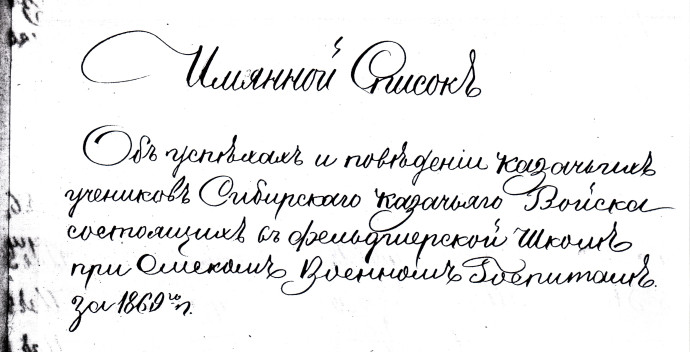 Имянной Списокъ
Объ успѣхахъ и повѣденіи казачьихъ
учениковъ Сибирскаго казачьяго Войска
состоящихъ въ фельдшерской Школѣ
при Омскомъ Военномъ Госпиталѣ.
за 1869 го г.